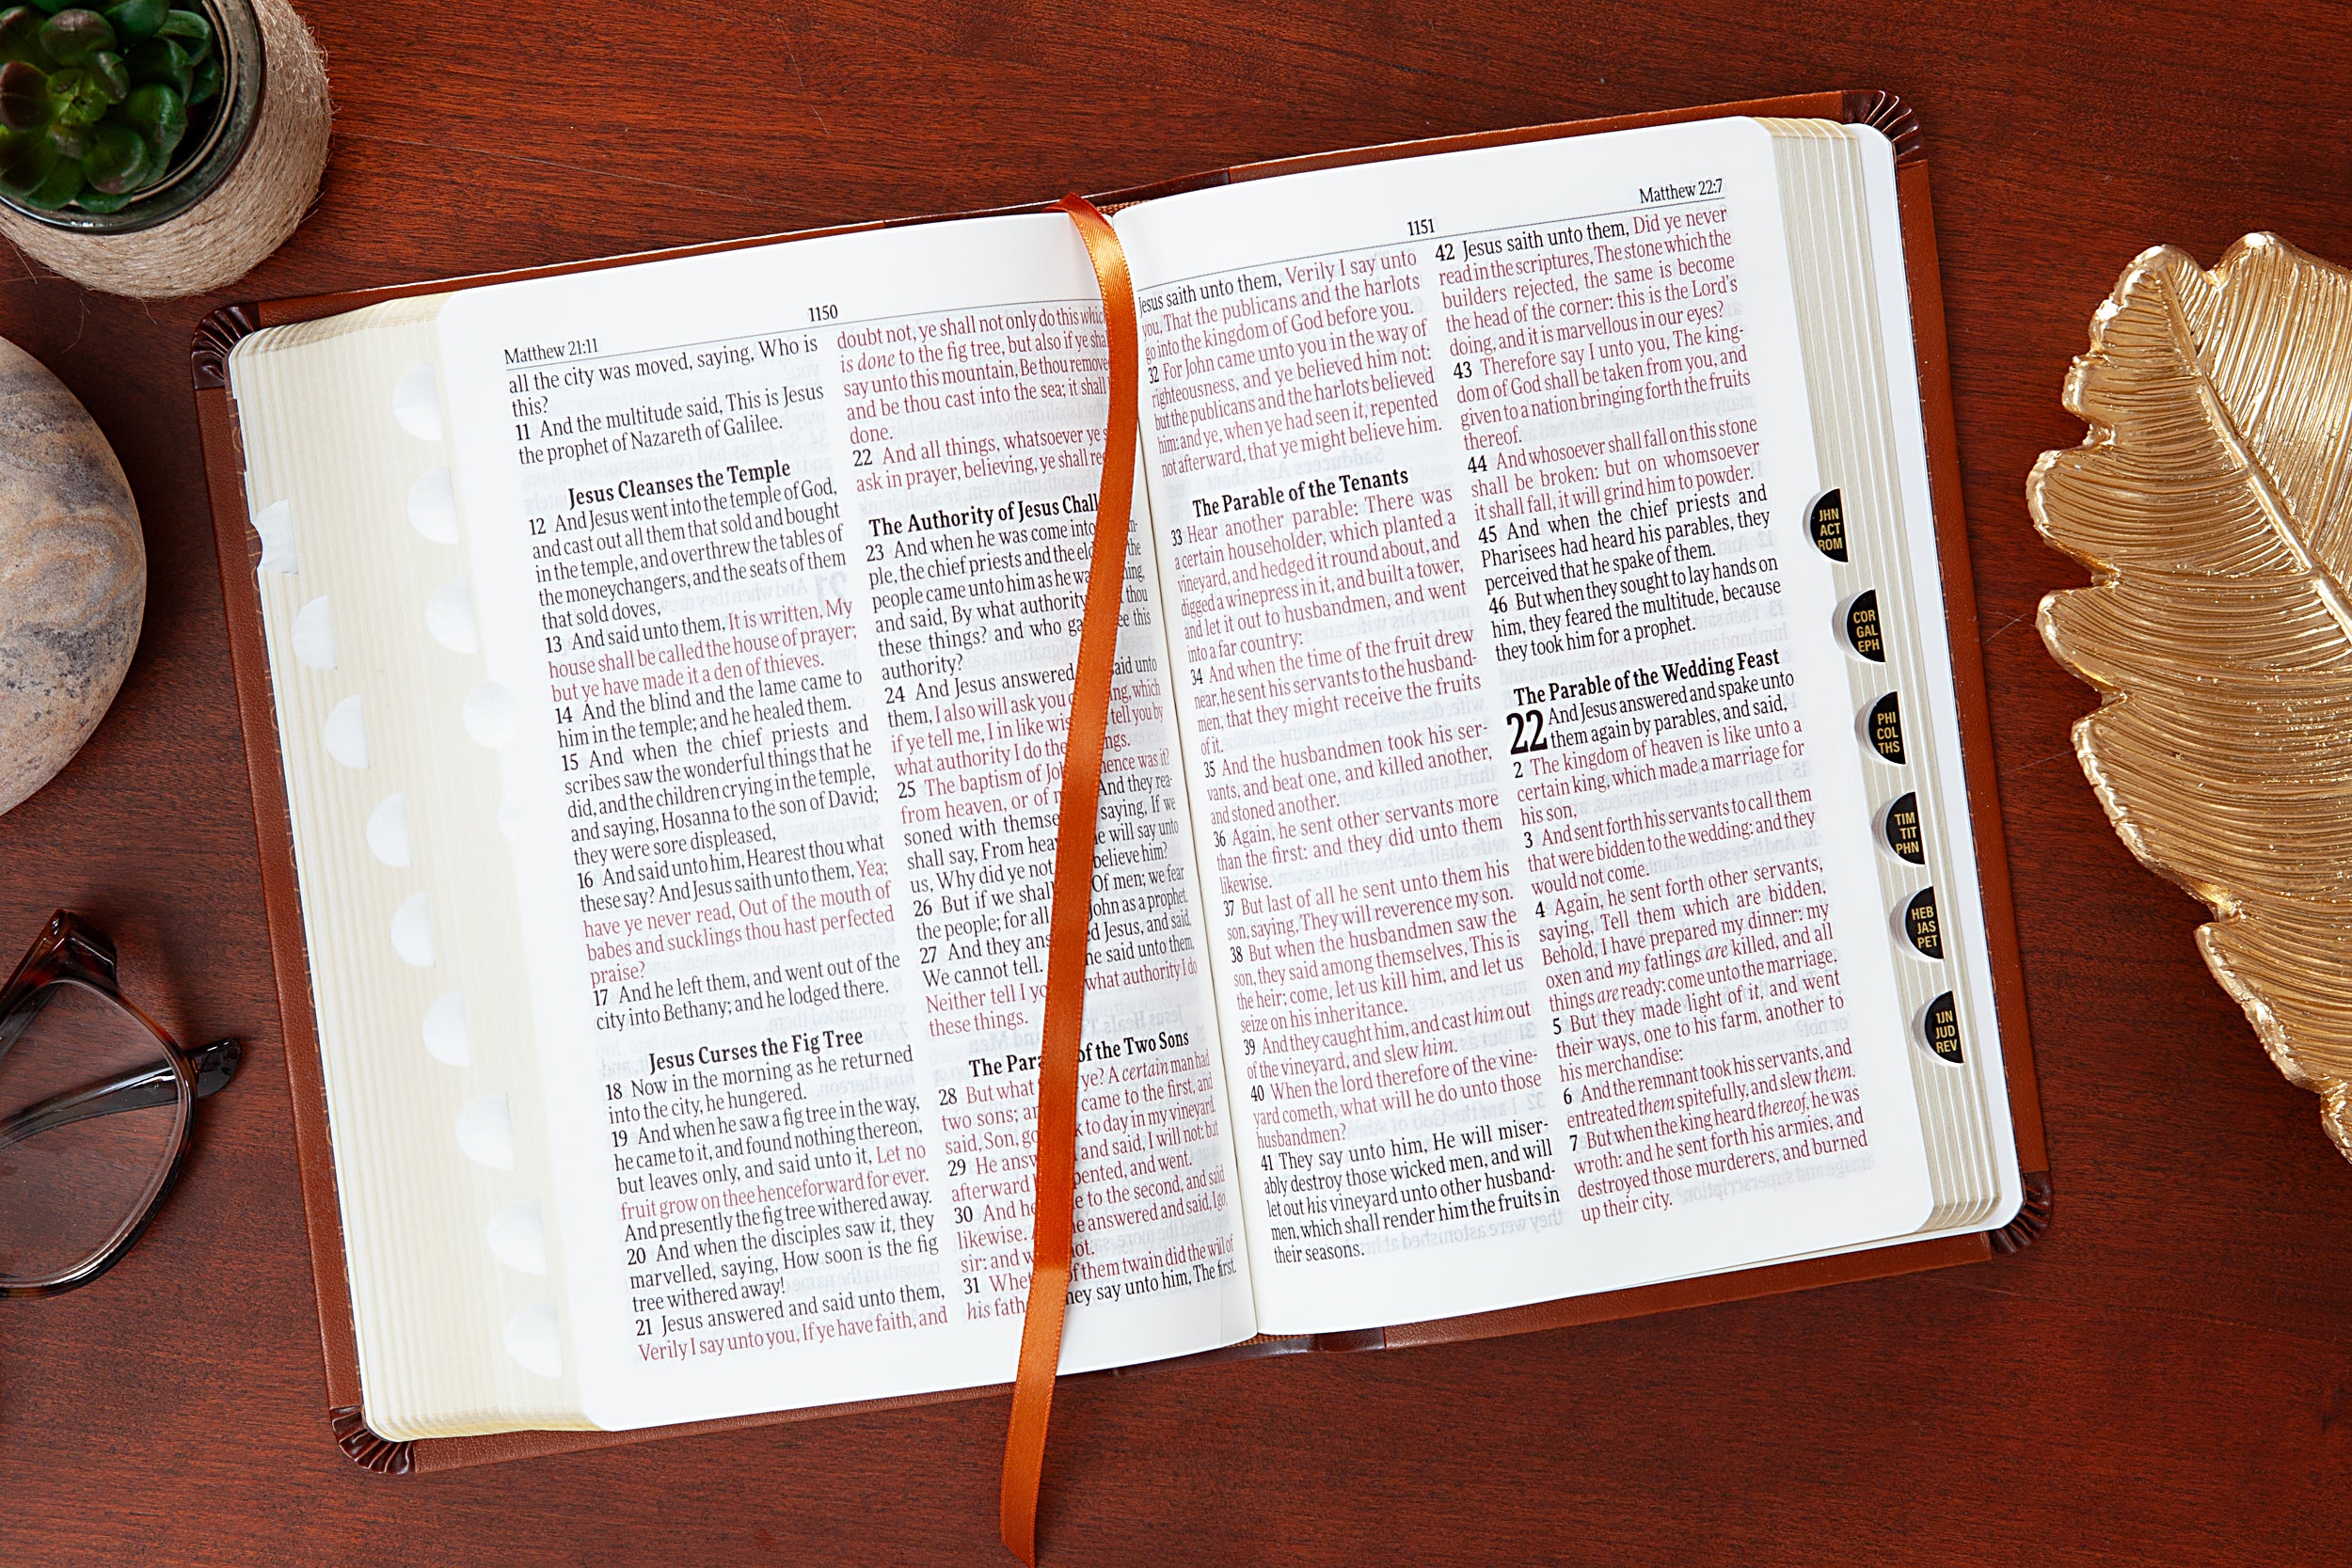 Matthew 21:11
1150
all the city was moved, saying, Who is
this?
11 And the multitude said, This is Jesus
the prophet of Nazareth of Galilee.
Jesus Cleanses the Temple
12 And Jesus went into the temple of God,
and cast out all them that sold and bought
in the temple, and overthrew the tables of
the moneychangers, and the seats of them
that sold doves,
13 And said unto them, It is written, My
house shall be called the house of prayer;
but ye have made it a den of thieves.
14 And the blind and the lame came to
him in the temple; and he healed them.
15 And when the chief priests and
scribes saw the wonderful things that he
did, and the children crying in the temple,
and saying, Hosanna to the son of David;
they were sore displeased,
16 And said unto him, Hearest thou what
these say? And Jesus saith unto them, Yea;
have ye never read, Out of the mouth of
babes and sucklings thou hast perfected
praise?
17 And he left them, and went out of the
city into Bethany; and he lodged there.
Jesus Curses the Fig Tree
18 Now in the morning as he returned
into the city, he hungered.
19 And when he saw a fig tree in the way,
he came to it, and found nothing thereon,
but leaves only, and said unto it, Let no
fruit grow on thee henceforward for ever.
And presently the fig tree withered away.
20 And when the disciples saw it, they
marvelled, saying, How soon is the fig
tree withered away!
21 Jesus answered and said unto them,
Verily I say unto you, If ye have faith, and
doubt not, ye shall not only do this which
is done to the fig tree, but also if ye
say unto this mountain, Be thou
and be thou cast into the sea; it shall
done.
22 And all things, whatsoever ye
ask in prayer, believing, ye shall
The Authority of Jesus
23 And when he was come into
ple, the chief priests and the the
people came unto him as he
and said, By what authority thou
these things? and who this
authority?
24 And Jesus answered said unto
them, I also will ask you which
if ye tell me, I in like tell you by
what authority I do
25 The baptism of was it?
from heaven, or of And they rea-
soned with saying, If we
shall say, From will say unto
us, Why did ye not believe him?
26 But if we Of men; we fear
the people; for all John as a prophet.
27 And they Jesus, and said,
We cannot tell. he said unto them,
Neither tell I what authority I do
these things.
The of the Two Sons
28 But what ye? A certain man had
two sons; came to the first, and
said, Son, to day in my vineyard.
29 He and said, I will not: but
afterward and went.
30 And to the second, and said
likewise. answered and said, I go,
sir: and
31 of them twain did the will of
his They say unto him, The first.
1151
Matthew 22:7
Jesus saith unto them, Verily I say unto
you, That the publicans and the harlots
go into the kingdom of God before you.
32 For John came unto you in the way of
righteousness, and ye believed him not:
but the publicans and the harlots believed
him: and ye, when ye had seen it, repented
not afterward, that ye might believe him.
The Parable of the Tenants
33 Hear another parable: There was
a certain householder, which planted a
vineyard, and hedged it round about, and
digged a winepress in it, and built a tower,
and let it out to husbandmen, and went
into a far country:
34 And when the time of the fruit drew
near, he sent his servants to the husband-
men, that they might receive the fruits
of it.
35 And the husbandmen took his ser-
vants, and beat one, and killed another,
and stoned another.
36 Again, he sent other servants more
than the first: and they did unto them
likewise.
37 But last of all he sent unto them his
son, saying, They will reverence my son.
38 But when the husbandmen saw the
son, they said among themselves, This is
the heir; come, let us kill him, and let us
seize on his inheritance.
39 And they caught him, and cast him out
of the vineyard, and slew him.
40 When the lord therefore of the vine-
yard cometh, what will he do unto those
husbandmen?
41 They say unto him, He will miser-
ably destroy those wicked men, and will
let out his vineyard unto other husband-
men, which shall render him the fruits in
their seasons.
42 Jesus saith unto them, Did ye never
read in the scriptures, The stone which the
builders rejected, the same is become
the head of the corner: this is the Lord's
doing, and it is marvellous in our eyes?
43 Therefore say I unto you, The king-
dom of God shall be taken from you, and
given to a nation bringing forth the fruits
thereof.
44 And whosoever shall fall on this stone
shall be broken: but on whomsoever
it shall fall, it will grind him to powder.
45 And when the chief priests and
Pharisees had heard his parables, they
perceived that he spake of them.
46 But when they sought to lay hands on
him, they feared the multitude, because
they took him for a prophet.
The Parable of the Wedding Feast
22 And Jesus answered and spake unto
them again by parables, and said,
2 The kingdom of heaven is like unto a
certain king, which made a marriage for
his son,
3 And sent forth his servants to call them
that were bidden to the wedding: and they
would not come.
4 Again, he sent forth other servants,
saying, Tell them which are bidden,
Behold, I have prepared my dinner: my
oxen and my fatlings are killed, and all
things are ready: come unto the marriage.
5 But they made light of it, and went
their ways, one to his farm, another to
his merchandise:
6 And the remnant took his servants, and
entreated them spitefully, and slew them.
7 But when the king heard thereof, he was
wroth: and he sent forth his armies, and
destroyed those murderers, and burned
up their city.
JHN
ACT
ROM
COR
GAL
EPH
PHI
COL
THS
TIM
TIT
PHN
HEB
JAS
PET
1JN
JUD
REV